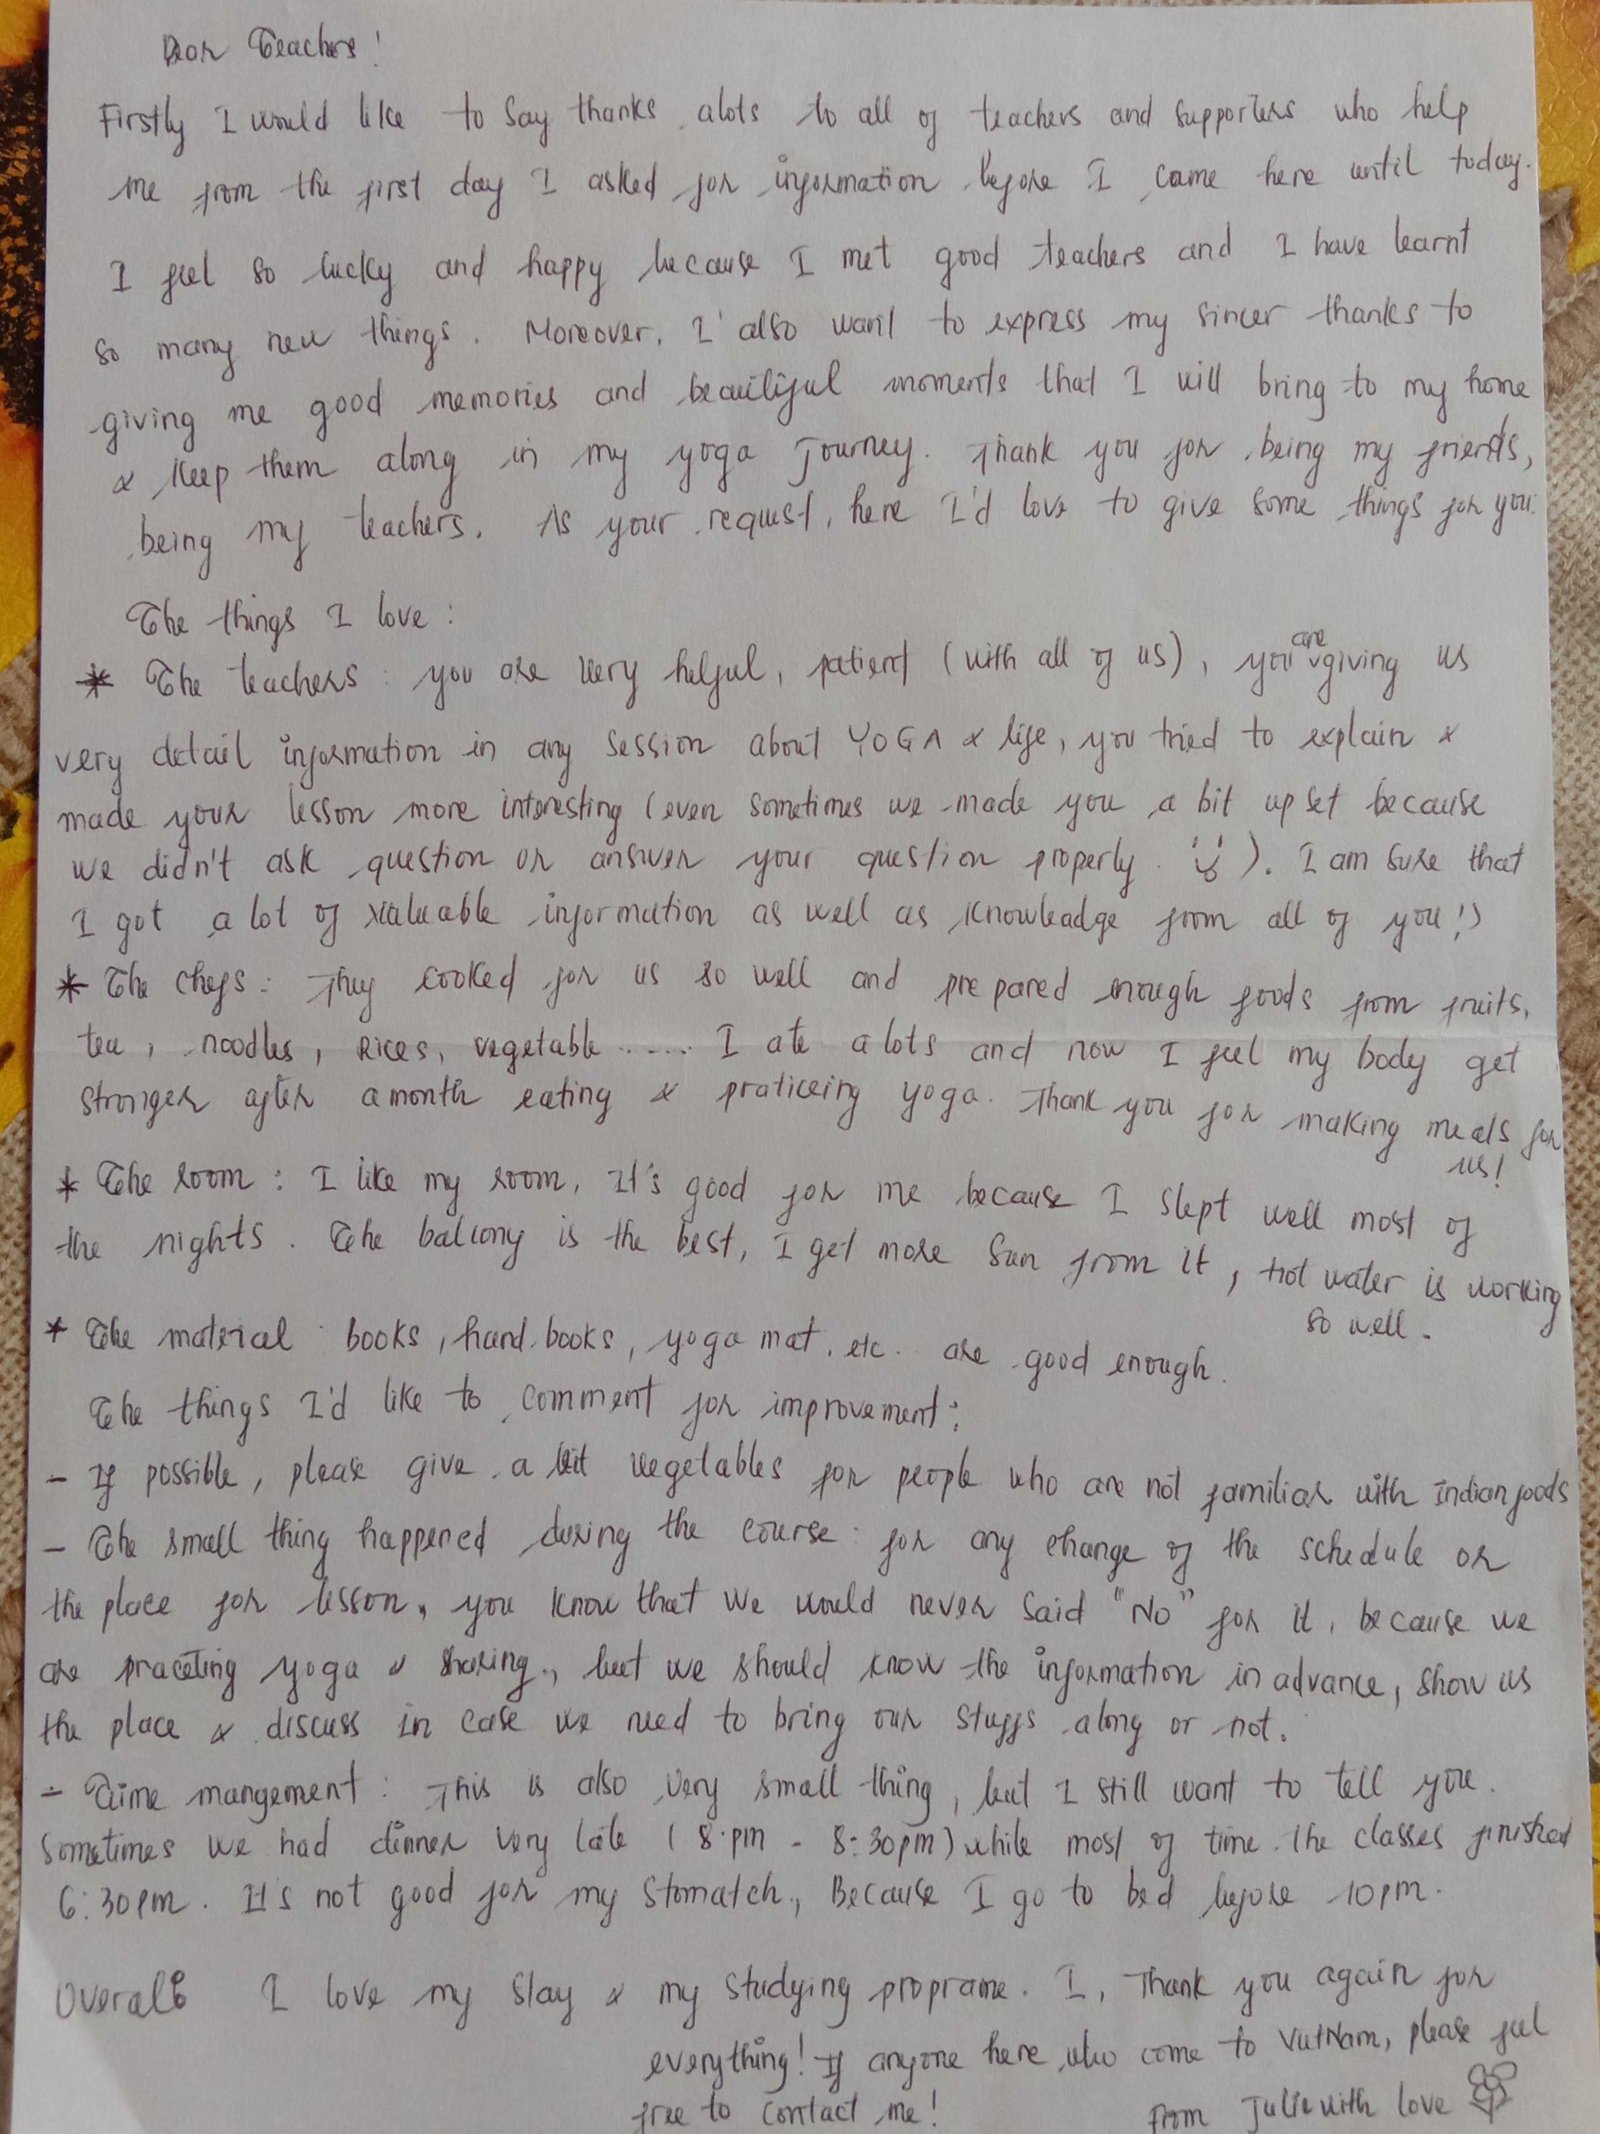 Dear Teachers!
Firstly I would like to say thanks alots to all of teachers and supporters who help
me from the first day I asked for information before I came here until today.
I feel so lucky and happy because I met good teachers and I have learnt
so many new things. Moreover, I also want to express my sincer thanks to
giving me good memories and beautiful moments that I will bring to my home
& keep them along in my yoga journey. Thank you for being my friends,
being my teachers. As your request, here I'd love to give some things for you:
The things I love:
* The teachers: you are very helful, patient (with all of us), you are giving us
very detail information in any session about YOGA & life, you tried to explain &
made your lesson more interesting (even sometimes we made you a bit upset because
we didn't ask question or answer your question properly. ). I am sure that
I got a lot of valuable information as well as knowleadge from all of you!)
* The chefs: They cooked for us so well and prepared enough foods from fruits,
tea, noodles, rices, vegetable ...... I ate alots and now I feel my body get
stronger after a month eating & praticeing yoga. Thank you for making meals for
us!
* The room: I like my room, It's good for me because I slept well most of
the nights. The balcony is the best, I get more sun from it, hot water is working
so well.
* The material: books, hand books, yoga mat, etc. are good enough.
The things I'd like to comment for improvement:
- If possible, please give a bit vegetables for people who are not familiar with Indian foods
- The small thing happened during the course: for any change of the schedule or
the place for lesson, you know that we would never said "No" for it, because we
are practing yoga & sharing, but we should know the information in advance, show us
the place & discuss in case we need to bring our stuffs along or not.
- Time mangement: This is also very small thing, but I still want to tell you.
Sometimes we had dinner very late (8pm - 8:30pm) while most of time the classes finished
6:30pm. It's not good for my stomatch, Because I go to bed before 10pm.
Overall: I love my stay & my studying programe. I, Thank you again for
everything! If anyone here who come to VietNam, please feel
free to contact me!
from Julie with love